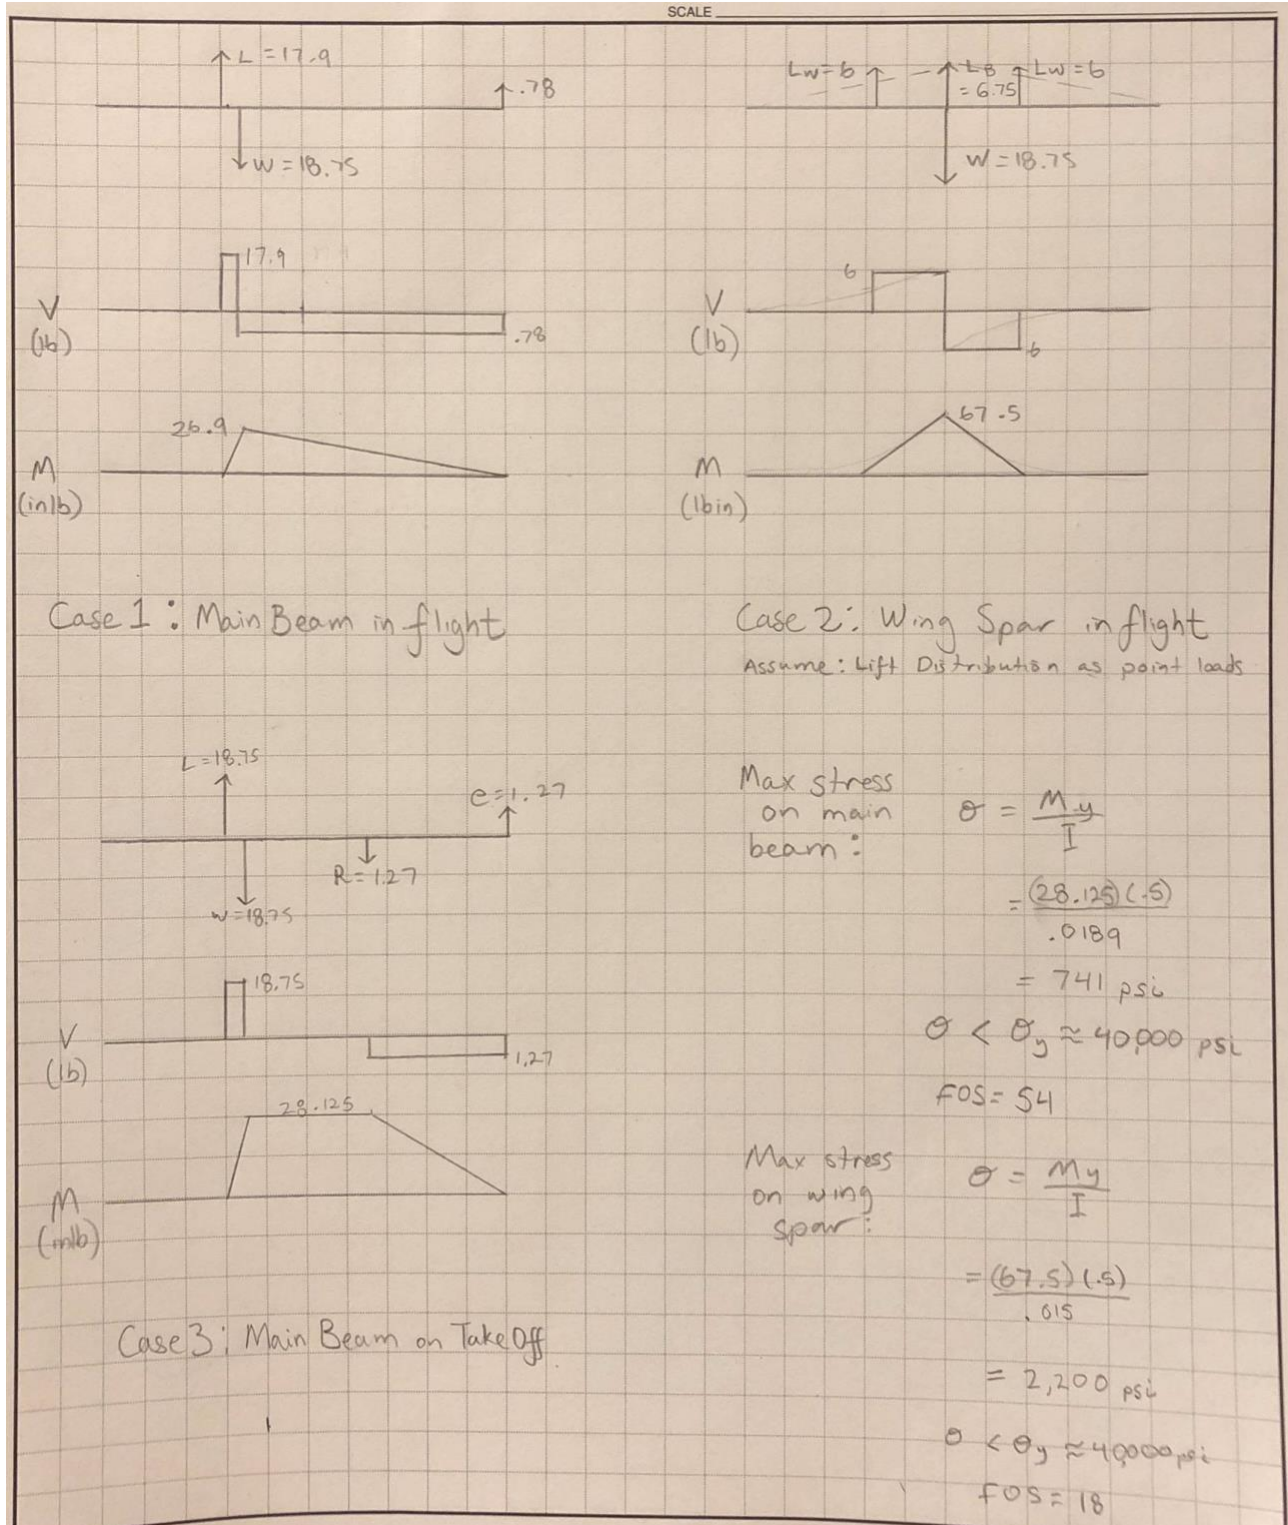 SCALE
L = 17.9
.78
W = 18.75
V
(lb)
17.9
.78
M
(inlb)
26.9
Case 1: Main Beam in flight
Lw=6
LB
= 6.75
Lw=6
W = 18.75
V
(lb)
6
6
M
(lbin)
67.5
Case 2: Wing Spar in flight
Assume: Lift Distribution as point loads
L=18.75
e=1.27
R=1.27
w=18.75
V
(lb)
18.75
1.27
M
(inlb)
28.125
Case 3: Main Beam on Take Off
Max stress
on main
beam:
σ = My
I
= (28.125)(.5)
.0189
= 741 psi
σ < σy ≈ 40,000 psi
FOS= 54
Max stress
on wing
spar:
σ = My
I
= (67.5)(.5)
.015
= 2,200 psi
σ < σy ≈ 40,000 psi
FOS = 18